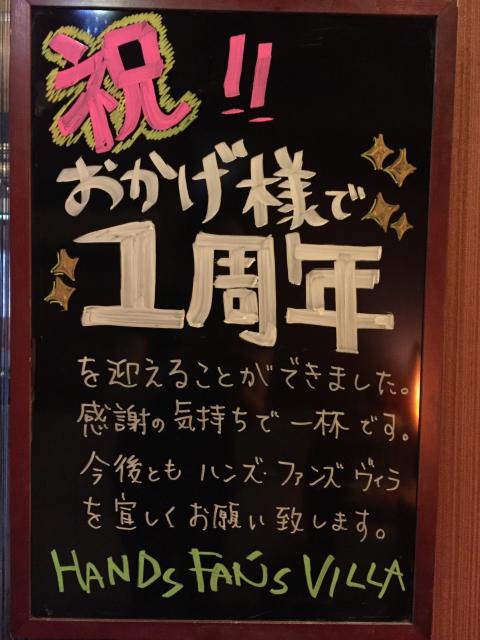 祝!!
おかげ様で
1周年
を迎えることができました。
感謝の気持ちで一杯です。
今後とも ハンズ・ファンズ ヴィラ
を宜しくお願い致します。
HANDS FANS VILLA